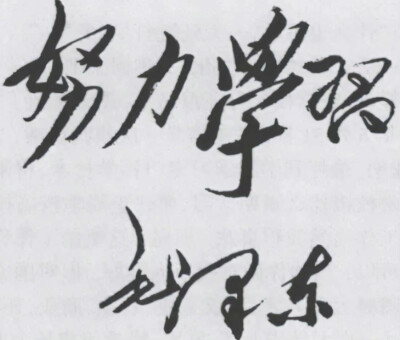 努力學习
毛泽东